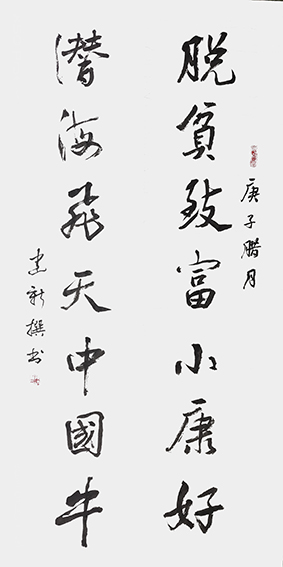 庚子腊月
脱贫致富小康好
潛海飛天中國牛
建新撰书